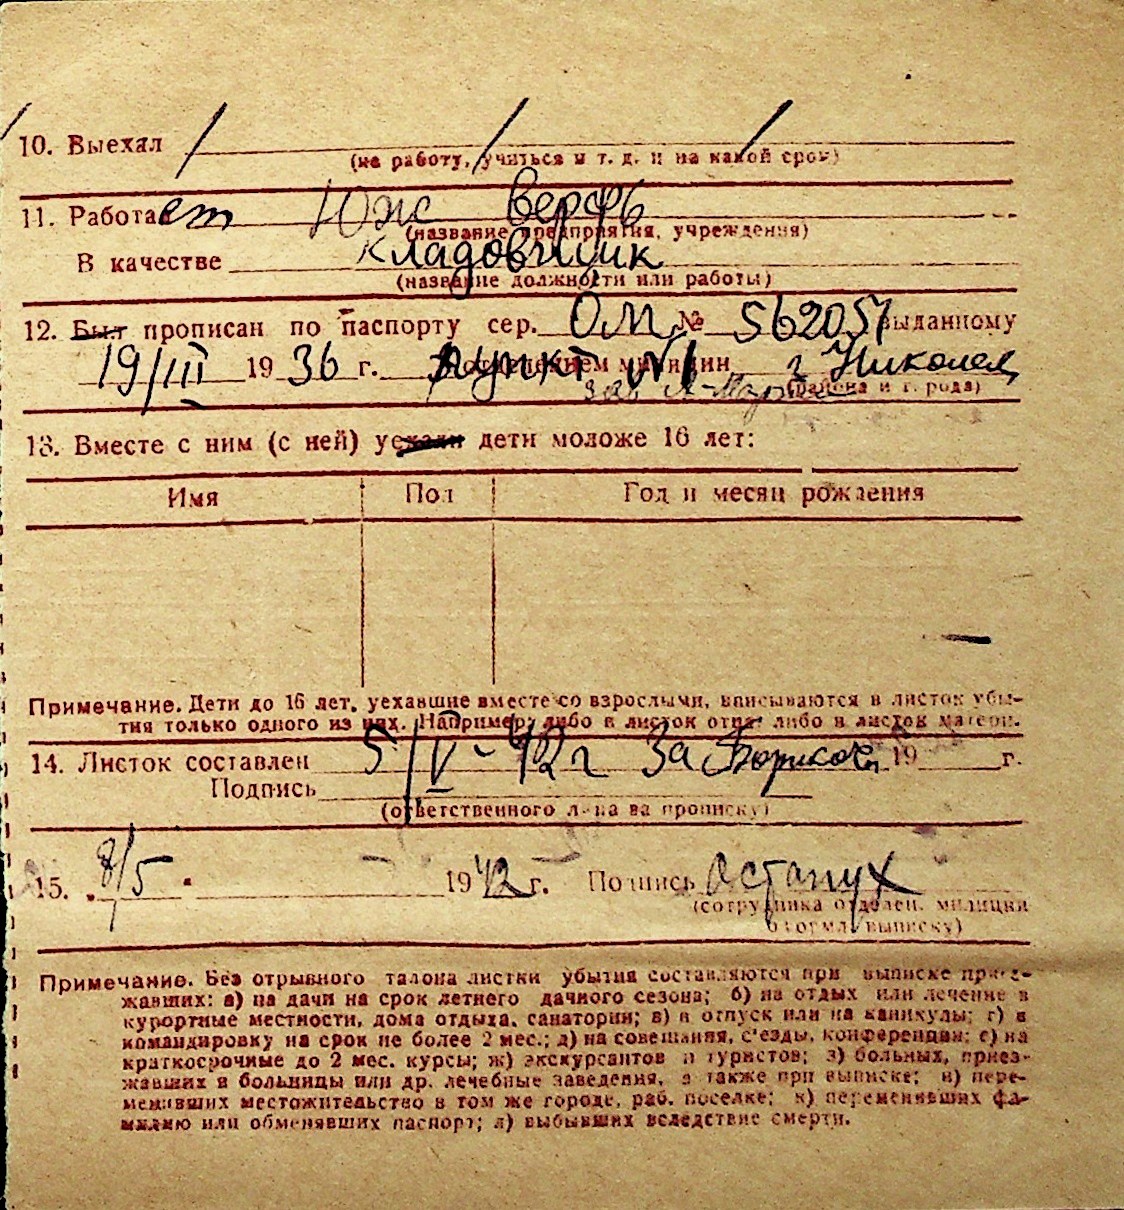 10. Выехал
(на работу, учиться и т. д. и на какой срок)
11. Работает Юж верфь
(название предприятия, учреждения)
В качестве кладовщик
(название должности или работы)
12. Был прописан по паспорту сер. ОМ № 562057 выданному
19/III 1936 г. пункт №1 г Николаев
(района и города)
13. Вместе с ним (с ней) уехали дети моложе 16 лет:
Имя Пол Год и месяц рождения
Примечание. Дети до 16 лет, уехавшие вместе со взрослыми, вписываются в листок убы-
тия только одного из них. Например: либо в листок отца либо в листок матери.
14. Листок составлен 5/V-42 г За 19 г.
Подпись
(ответственного лица за прописку)
15. „8/5" 1942 г. Подпись Остапух
(сотрудника отделен. милиции
оформл. выписку)
Примечание. Без отрывного талона листки убытия составляются при выписке приез-
жавших: а) на дачи на срок летнего дачного сезона; б) на отдых или лечение в
курортные местности, дома отдыха, санатории; в) в отпуск или на каникулы; г) в
командировку на срок не более 2 мес.; д) на совещания, с'езды, конференции; е) на
краткосрочные до 2 мес. курсы; ж) экскурсантов и туристов; з) больных, приез-
жавших в больницы или др. лечебные заведения, а также при выписке; и) пере-
менивших местожительство в том же городе, раб. поселке; к) переменивших фа-
милию или обменявших паспорт; л) выбывших вследствие смерти.